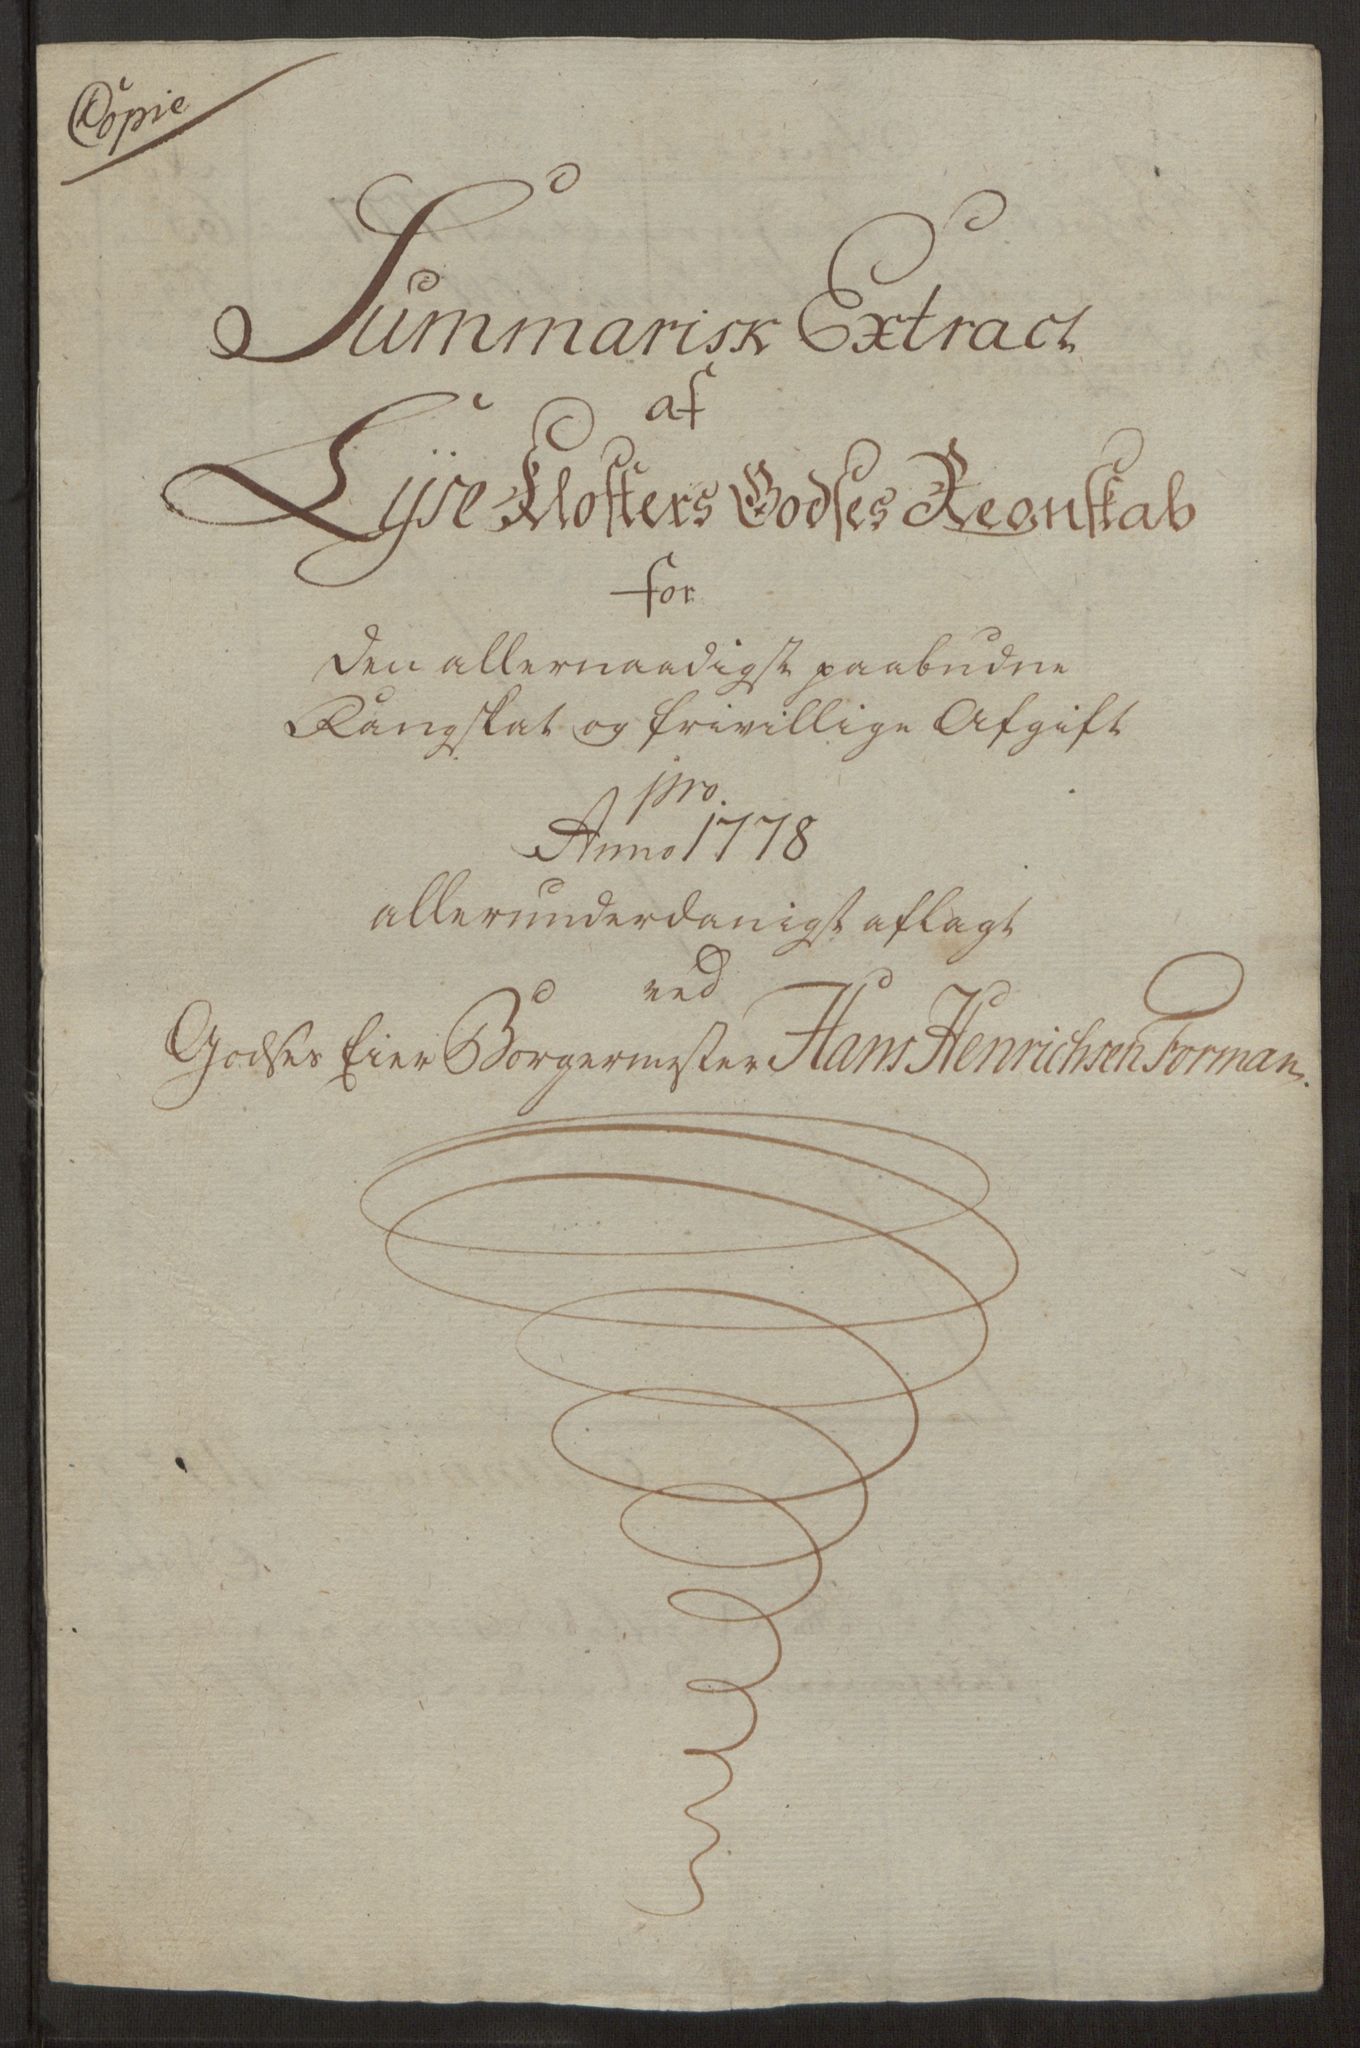 Copie
Summarisk Extract
af
Lyse Klosters Godses Regnskab
for
den allernaadigst paabudne
Rangskat og frivillige Afgift
pro.
Anno 1778
allerunderdanigst aflagt
ved
Godses Eier Borgermester Hans Henrichsen Forman.